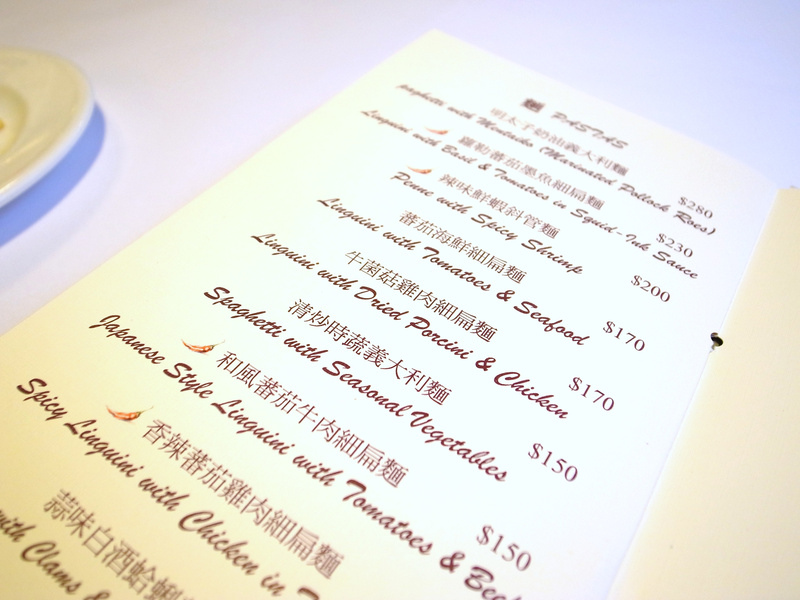 麵 PASTAS
明太子奶油義大利麵 $280
paghetti with Mentaiko (Marinated Pollock Roes)
蘿勒蕃茄墨魚細扁麵 $230
Linguini with Basil & Tomatoes in Squid-Ink Sauce
辣味鮮蝦斜管麵 $200
Penne with Spicy Shrimp
蕃茄海鮮細扁麵 $170
Linguini with Tomatoes & Seafood
牛菌菇雞肉細扁麵 $170
Linguini with Dried Porcini & Chicken
清炒時蔬義大利麵 $150
Spaghetti with Seasonal Vegetables
和風蕃茄牛肉細扁麵 $150
Japanese Style Linguini with Tomatoes & Beef
香辣蕃茄雞肉細扁麵
Spicy Linguini with Chicken in
蒜味白酒蛤蜊
with Clams &